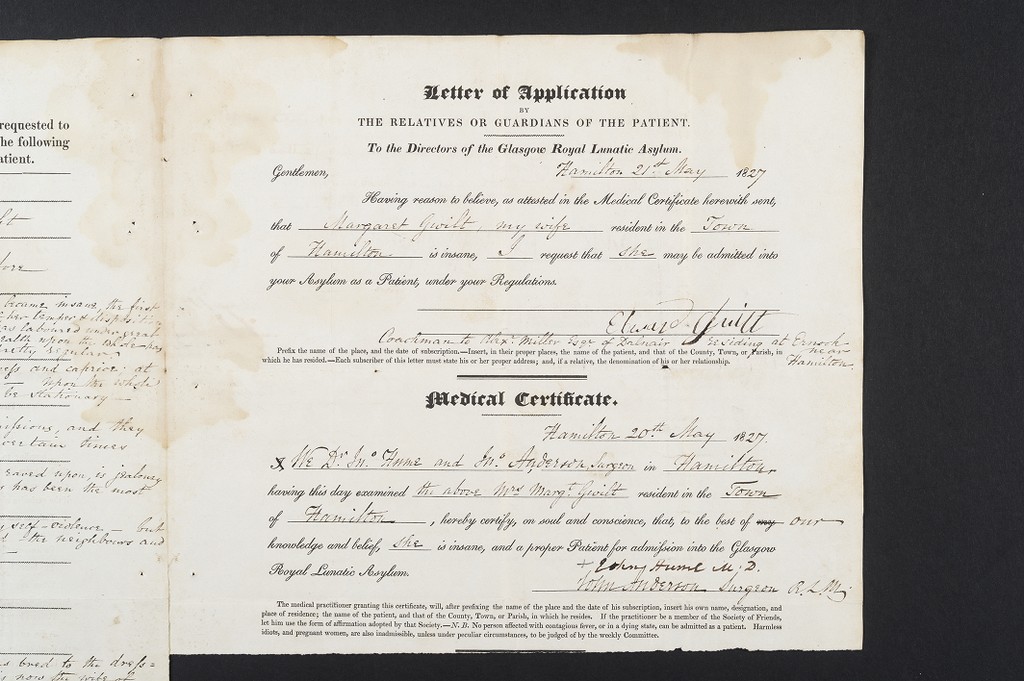 requested to
he following
atient.
lt
fore
became insane the first
her temper & disposition
as laboured under great
ealth upon the whole has
pretty regular
ness and caprice at
— upon the whole
be Stationary —
missions, and they
certain times
eaved upon, is jealousy
s has been the most
self-violence — but
d the neighbours and
s bred to the dress=
s now the wife of
Letter of Application
BY
THE RELATIVES OR GUARDIANS OF THE PATIENT.
To the Directors of the Glasgow Royal Lunatic Asylum.
Gentlemen, Hamilton 21st May 1827
Having reason to believe, as attested in the Medical Certificate herewith sent,
that Margaret Gwilt, my wife resident in the Town
of Hamilton is insane, I request that she may be admitted into
your Asylum as a Patient, under your Regulations.
Edward Gwilt
Coachman to Alexr. Miller Esqr of Dalnair residing at Ernock
near
Hamilton
Prefix the name of the place, and the date of subscription.—Insert, in their proper places, the name of the patient, and that of the County, Town, or Parish, in
which he resided.—Each subscriber of this letter must state his or her proper address; and, if a relative, the denomination of his or her relationship.
Medical Certificate.
Hamilton 20th May 1827.
I We Dr Jno. Hume and Jno. Anderson, Surgeon in Hamilton,
having this day examined the above Mrs Margt. Gwilt resident in the Town
of Hamilton, hereby certify, on soul and conscience, that, to the best of my our
knowledge and belief, she is insane, and a proper Patient for admission into the Glasgow
Royal Lunatic Asylum. John Hume M.D.
John Anderson Surgeon R.L.M.
The medical practitioner granting this certificate, will, after prefixing the name of the place and the date of his subscription, insert his own name, designation, and
place of residence; the name of the patient, and that of the County, Town, or Parish, in which he resides. If the practitioner be a member of the Society of Friends,
let him use the form of affirmation adopted by that Society.—N. B. No person affected with contagious fever, or in a dying state, can be admitted as a patient. Harmless
idiots, and pregnant women, are also inadmissible, unless under peculiar circumstances, to be judged of by the weekly Committee.